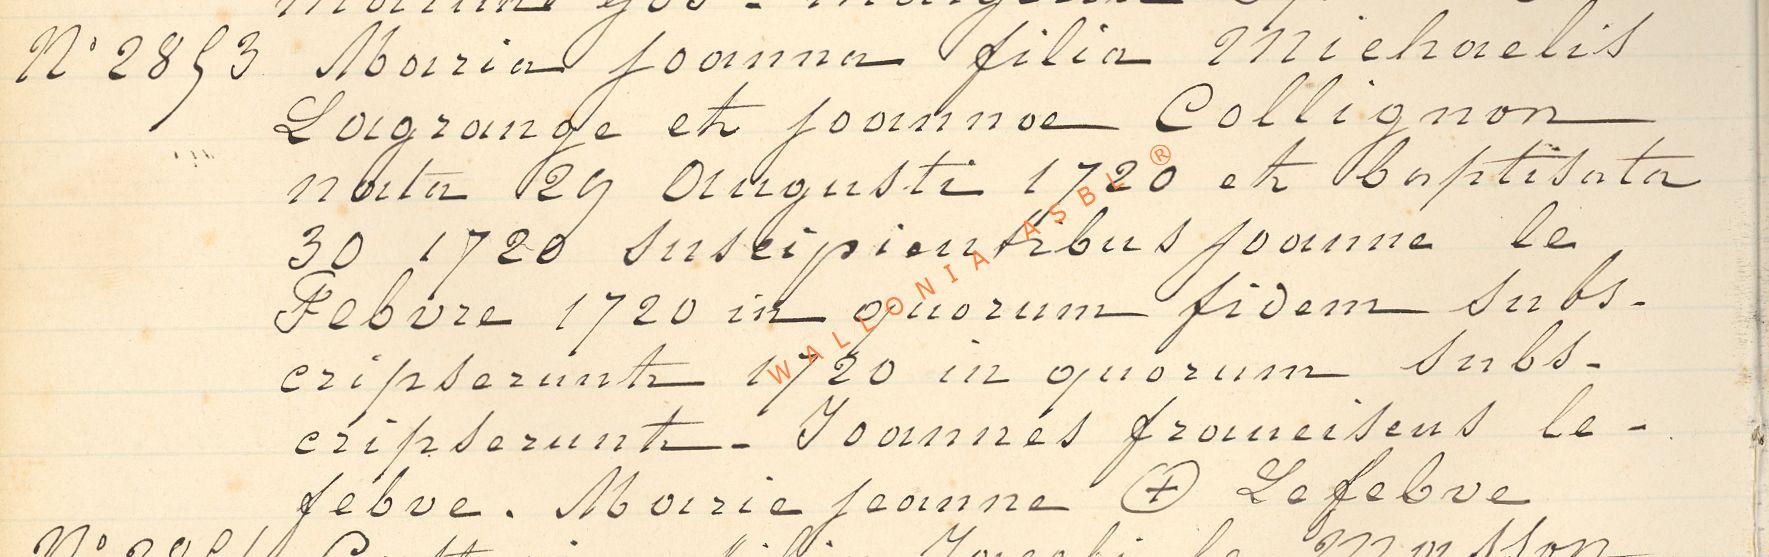 N° 2853 Maria joanna filia Michaelis
Lagrange et joannae Collignon
nata 29 Augusti 1720 et baptisata
30 1720 suscipientibus joanne le
Febvre 1720 in quorum fidem subs-
cripserunt 1720 in quorum subs-
cripserunt - Joannes franciscus le-
febve. Marie jeanne + Lefebve
WALLONIA ASBL ®